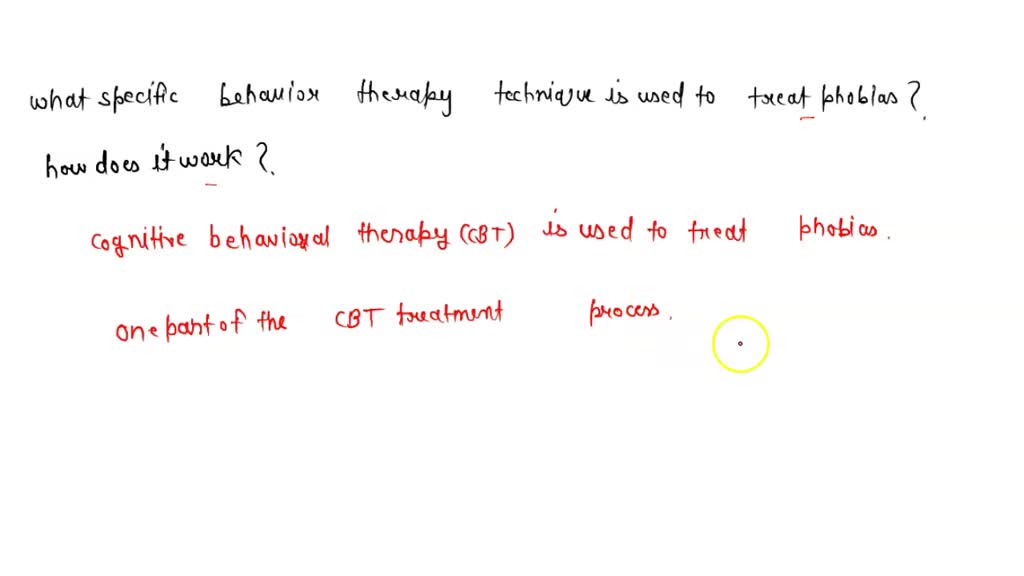 what specific behavior therapy technique is used to treat phobias?
how does it work?
cognitive behavioral therapy (CBT) is used to treat phobias.
one part of the CBT treatment process.